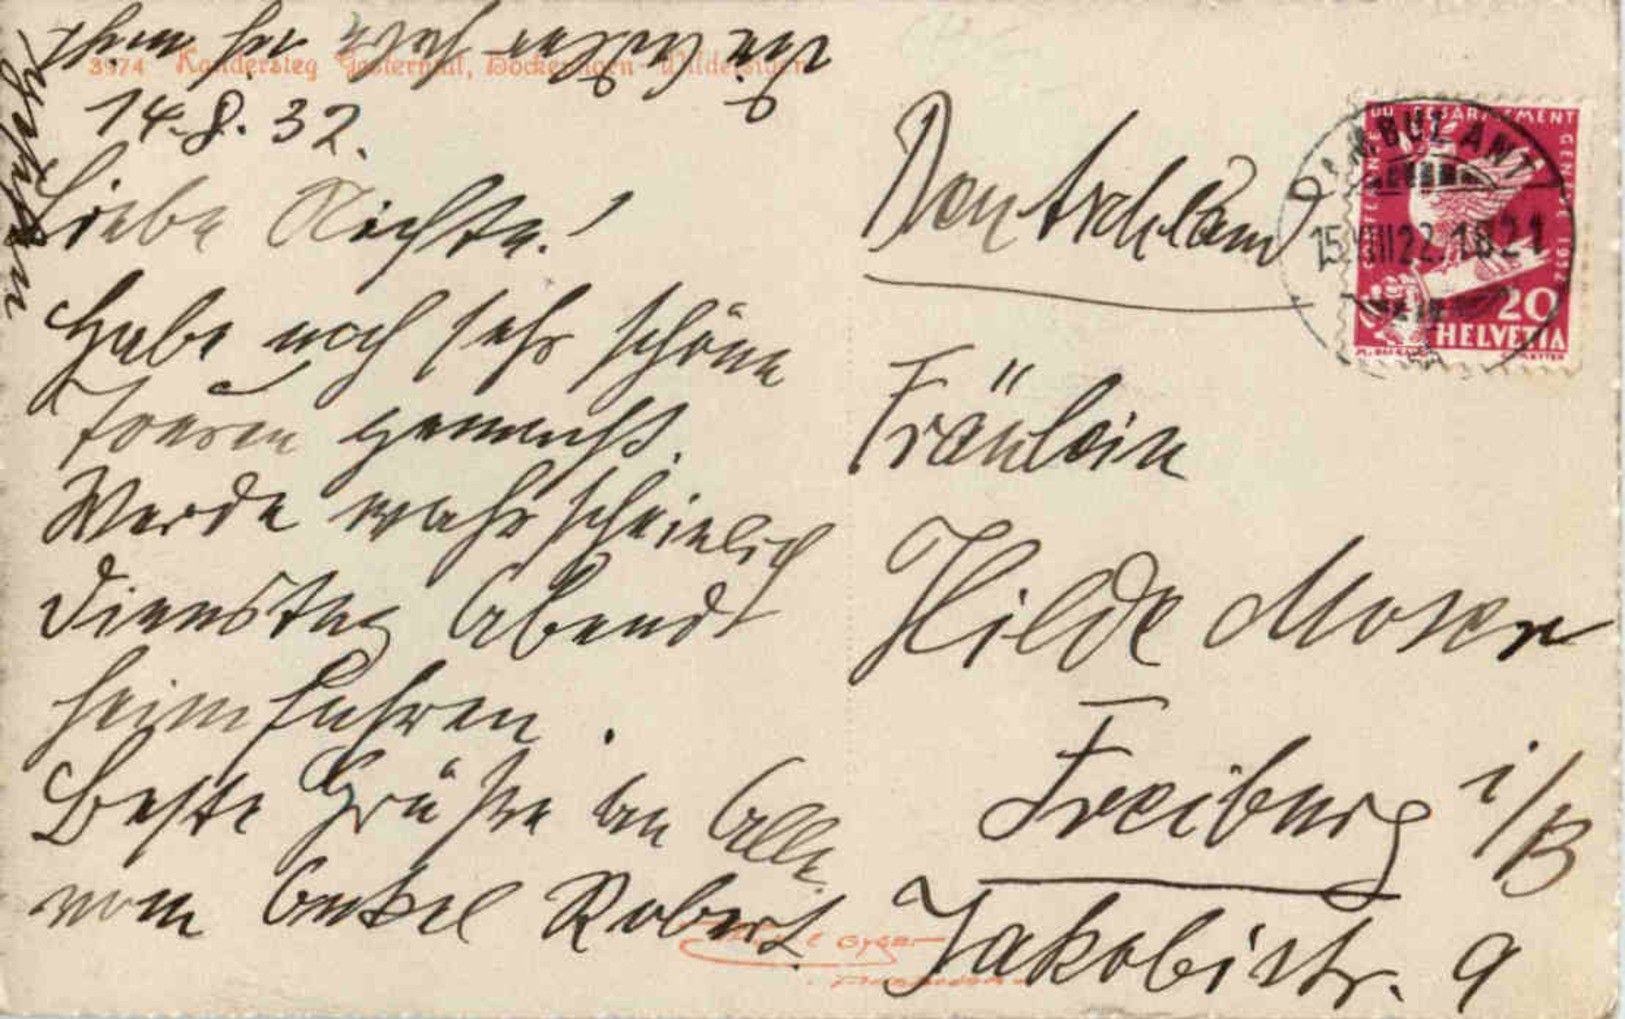 3974 Kandersteg Gasterntal, Dockenhorn Wildelsigen
14.8.32.
Liebe Nichte!
Habe noch sehr schöne
Touren gemacht.
Werde wahrscheinlich
Dienstag Abend
heimfahren.
Beste Grüße an Alle
vom Onkel Robert.
Die Karten habe ich nicht
Deutschland
Fräulein
Hilde Moser
Freiburg i/B
Jakobistr. 9
AMBULANT
15.VIII 22.1821
DU DESARMEMENT
GENEVE 1932
20
HELVETIA
Gyger